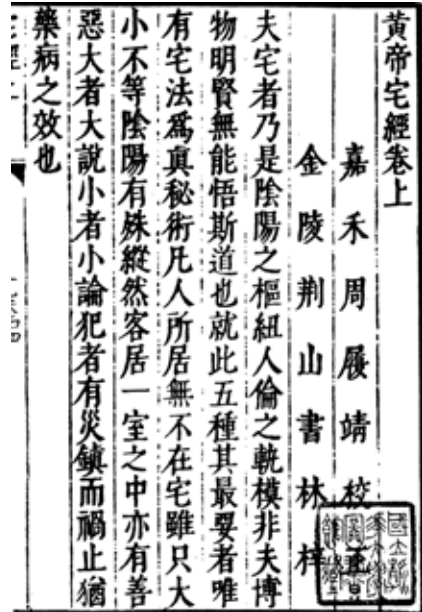 黄帝宅經卷上
嘉禾周履靖校正
金陵荆山書林梓
夫宅者乃是陰陽之樞紐人倫之軌模非夫博
物明賢無能悟斯道也就此五種其最要者唯
有宅法為眞秘術凡人所居無不在宅雖只大
小不等陰陽有殊縱然客居一室之中亦有善
惡大者大說小者小論犯者有災鎮而禍止猶
藥病之效也